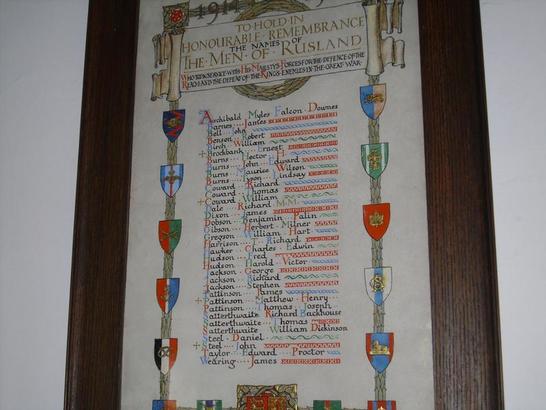 1914
TO HOLD IN
HONOURABLE · REMEMBRANCE
THE NAMES OF
THE · MEN · OF · RUSLAND
WHO TOOK SERVICE WITH HIS MAJESTY'S FORCES FOR THE DEFENCE OF THE
REALM AND THE DEFEAT OF THE KING'S ENEMIES IN THE GREAT WAR
Archibald Myles Falcon Downes
Barnes James
Bell John
Benson Robert
Birch William
+ Brockbank Ernest
Burns Hector H
Burns John Edward
Burns Maurice Wilson
Burns Lindsay
Coward Richard
Coward Thomas
+ Coward William
Dale Richard M.M.
Dixon James
Dobson Benjamin Palin
Gibson Herbert Milner
Gregson William Hart
Harrison T. Richard
Hawker Charles Edwin
Hudson Fred
Hudson Harold Victor
Jackson George
Jackson Richard
Jackson Stephen
Pattinson James
+ Pattinson Matthew Henry
Pattinson Thomas Joseph
Satterthwaite Richard Backhouse
Satterthwaite Thomas
Satterthwaite William Dickinson
Steel Daniel
+ Steel John
Taylor Edward Proctor
Wearing James